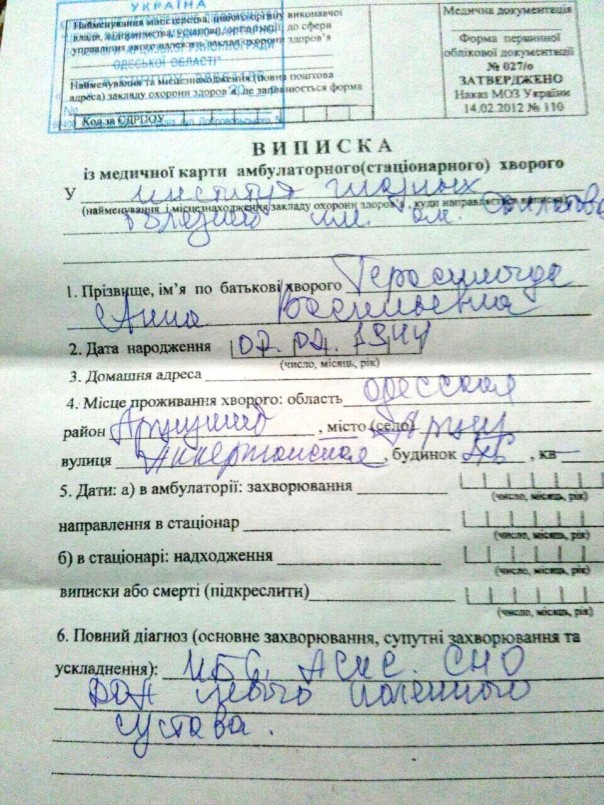 УКРАЇНА
Найменування міністерства, іншого органу виконавчої
влади, підприємства, установи, організації, до сфери
управління якого належить заклад охорони здоров'я
ОДЕСЬКОЇ ОБЛАСТІ"
Найменування та місцезнаходження (повна поштова
адреса) закладу охорони здоров'я, де заповнюється форма
Код за ЄДРПОУ
Медична документація
Форма первинної
облікової документації
№ 027/о
ЗАТВЕРДЖЕНО
Наказ МОЗ України
14.02.2012 № 110
ВИПИСКА
із медичної карти амбулаторного(стаціонарного) хворого
У институт глазных
(найменування і місцезнаходження закладу охорони здоров'я, куди направляється виписка)
болезней им. Филатова
1. Прізвище, ім'я по батькові хворого
Анна Васильевна
2. Дата народження 07.02.1944
(число, місяць, рік)
3. Домашня адреса
4. Місце проживання хворого: область Одесская
район , місто (село)
вулиця Аккерманская, будинок , кв —
5. Дати: а) в амбулаторії: захворювання
(число, місяць, рік)
направлення в стаціонар
(число, місяць, рік)
б) в стаціонарі: надходження
(число, місяць, рік)
виписки або смерті (підкреслити)
(число, місяць, рік)
6. Повний діагноз (основне захворювання, супутні захворювання та
ускладнення): ИБС. СНО
ДОА левого коленного
сустава.